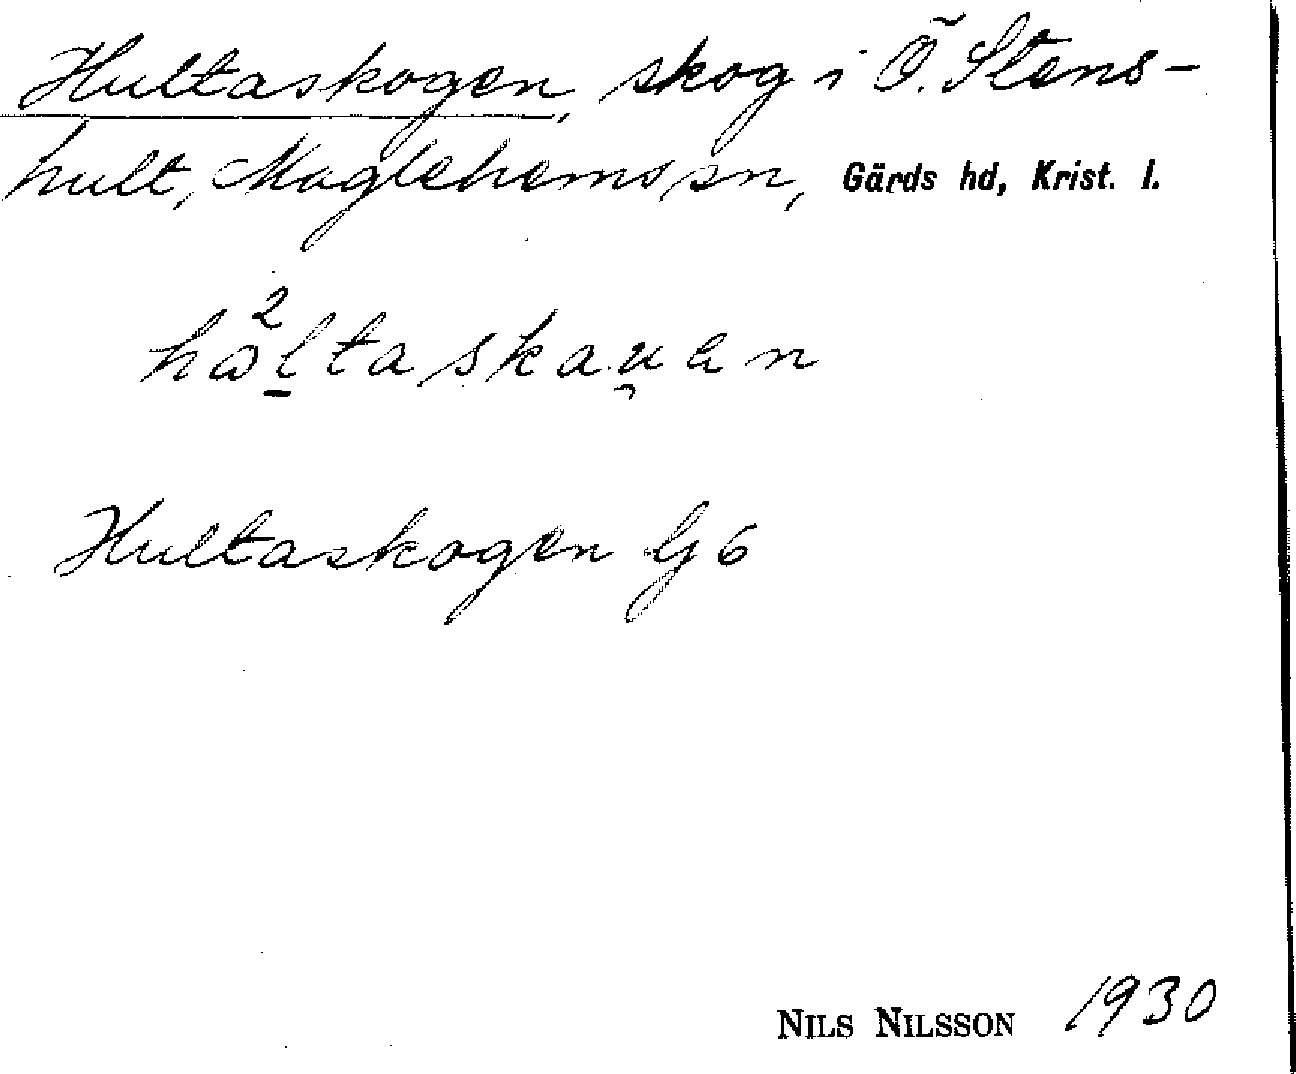 Hultaskogen, skog i Ö. Stens-
hult, Maglehems sn, Gärds hd, Krist. l.
Hultaskogen G 6
NILS NILSSON 1930